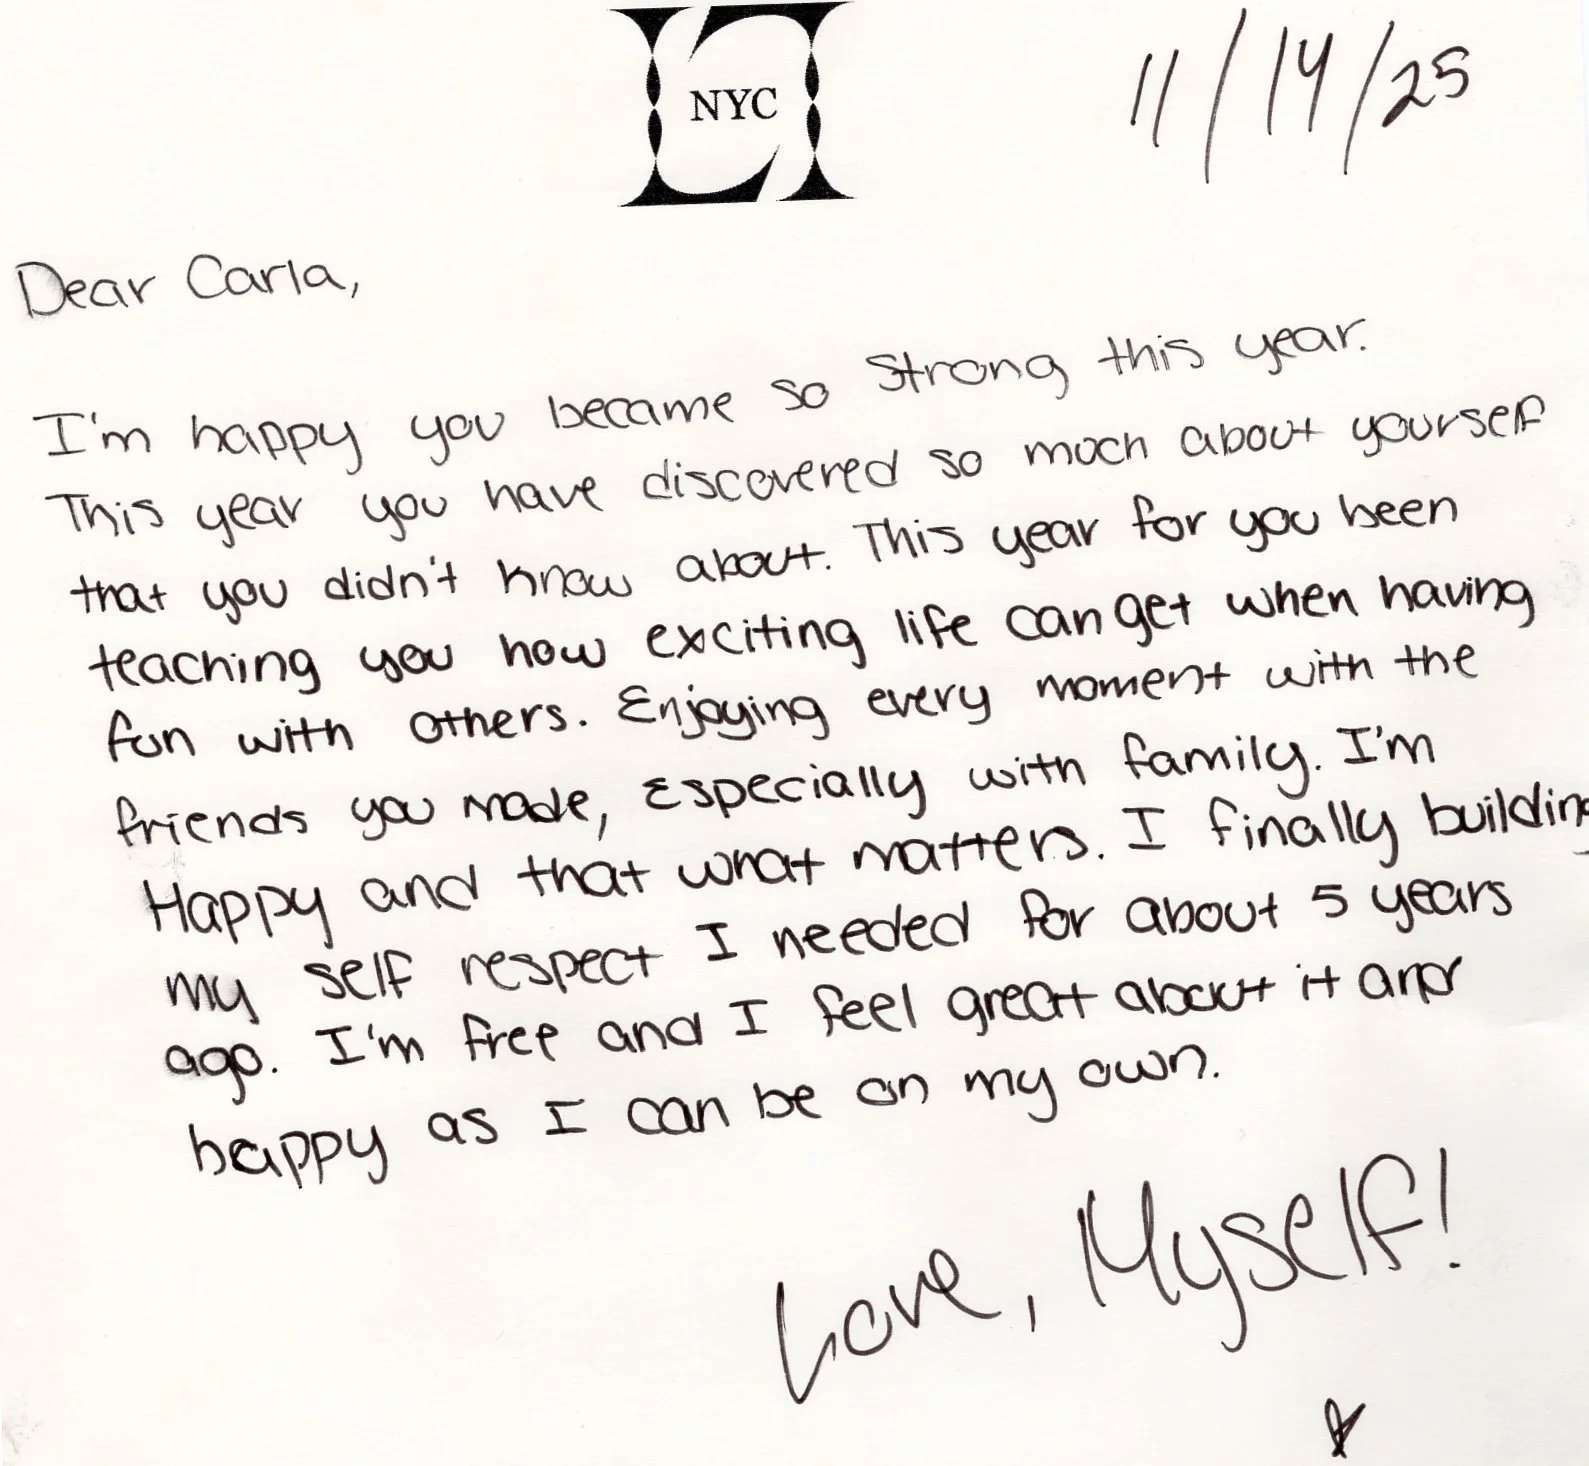 NYC
11/14/25
Dear Carla,
I'm happy you became so Strong this year.
This year you have discovered so much about yourself
that you didn't know about. This year for you been
teaching you how exciting life can get when having
fun with others. Enjoying every moment with the
friends you made, Especially with family. I'm
Happy and that what matters. I finally building
my self respect I needed for about 5 years
ago. I'm free and I feel great about it and
happy as I can be on my own.
Love, Myself!